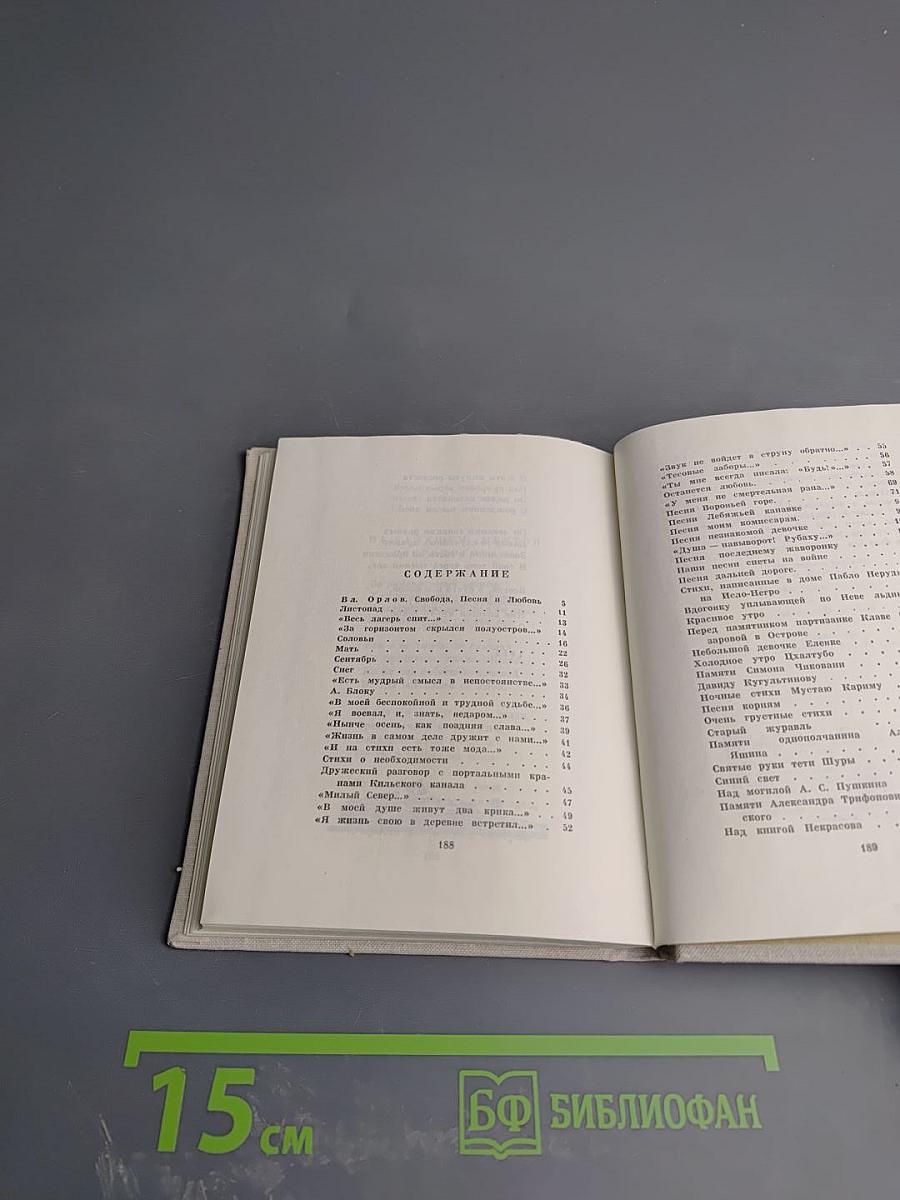 СОДЕРЖАНИЕ
Вл. Орлов. Свобода, Песня и Любовь 5
Листопад . . . . . . . . . . . 11
«Весь лагерь спит...» . . . . . . . . 13
«За горизонтом скрылся полуостров...» 14
Соловьи . . . . . . . . . . . 16
Мать . . . . . . . . . . . 22
Сентябрь . . . . . . . . . . . 26
Снег . . . . . . . . . . . 32
«Есть мудрый смысл в непостоянстве...» 33
А. Блоку . . . . . . . . . . . 34
«В моей беспокойной и трудной судьбе...» 36
«Я воевал, и, знать, недаром...» . . . 37
«Нынче осень, как поздняя слава...» . 39
«Жизнь в самом деле дружит с нами...» 41
«И на стихи есть тоже мода...» . . . 42
Стихи о необходимости . . . . . . 44
Дружеский разговор с портальными кра-
нами Кильского канала . . . . . . 45
«Милый Север...» . . . . . . . . 47
«В моей душе живут два крика...» . . 49
«Я жизнь свою в деревне встретил...» . 52
188
«Звук не войдет в струну обратно...» . . 55
«Тесовые заборы...» . . . . . . . 56
«Ты мне всегда писала: «Будь!»...» . . 57
Останется любовь. . . . . . . . 58
«У меня не смертельная рана...» . . . 69
Песня Вороньей горе. . . . . . . 71
Песни Лебяжьей канавке
Песня моим комиссарам.
Песня незнакомой девочке
«Душа — навыворот! Рубаху...» . . .
Песня последнему жаворонку
Наши песни спеты на войне
Песня дальней дороге. . . . .
Стихи, написанные в доме Пабло Неруды
на Исло-Негро . . . .
Вдогонку уплывающей по Неве
Красивое утро . . . . .
Перед памятником партизанке Клаве
заровой в Острове . . .
Небольшой девочке Еленке
Холодное утро Цхалтубо . . .
Памяти Симона Чиковани . . .
Давиду Кугультинову . . . .
Ночные стихи Мустаю Кариму
Песня корням . . . .
Очень грустные стихи . . .
Старый журавль . . . .
Памяти однополчанина
Яшина . . . . .
Святые руки тети Шуры . .
Синий свет . . . .
Над могилой А. С. Пушкина
Памяти Александра
ского . . . . .
Над книгой Некрасова . .
189
15 см
БФ БИБЛИОФАН